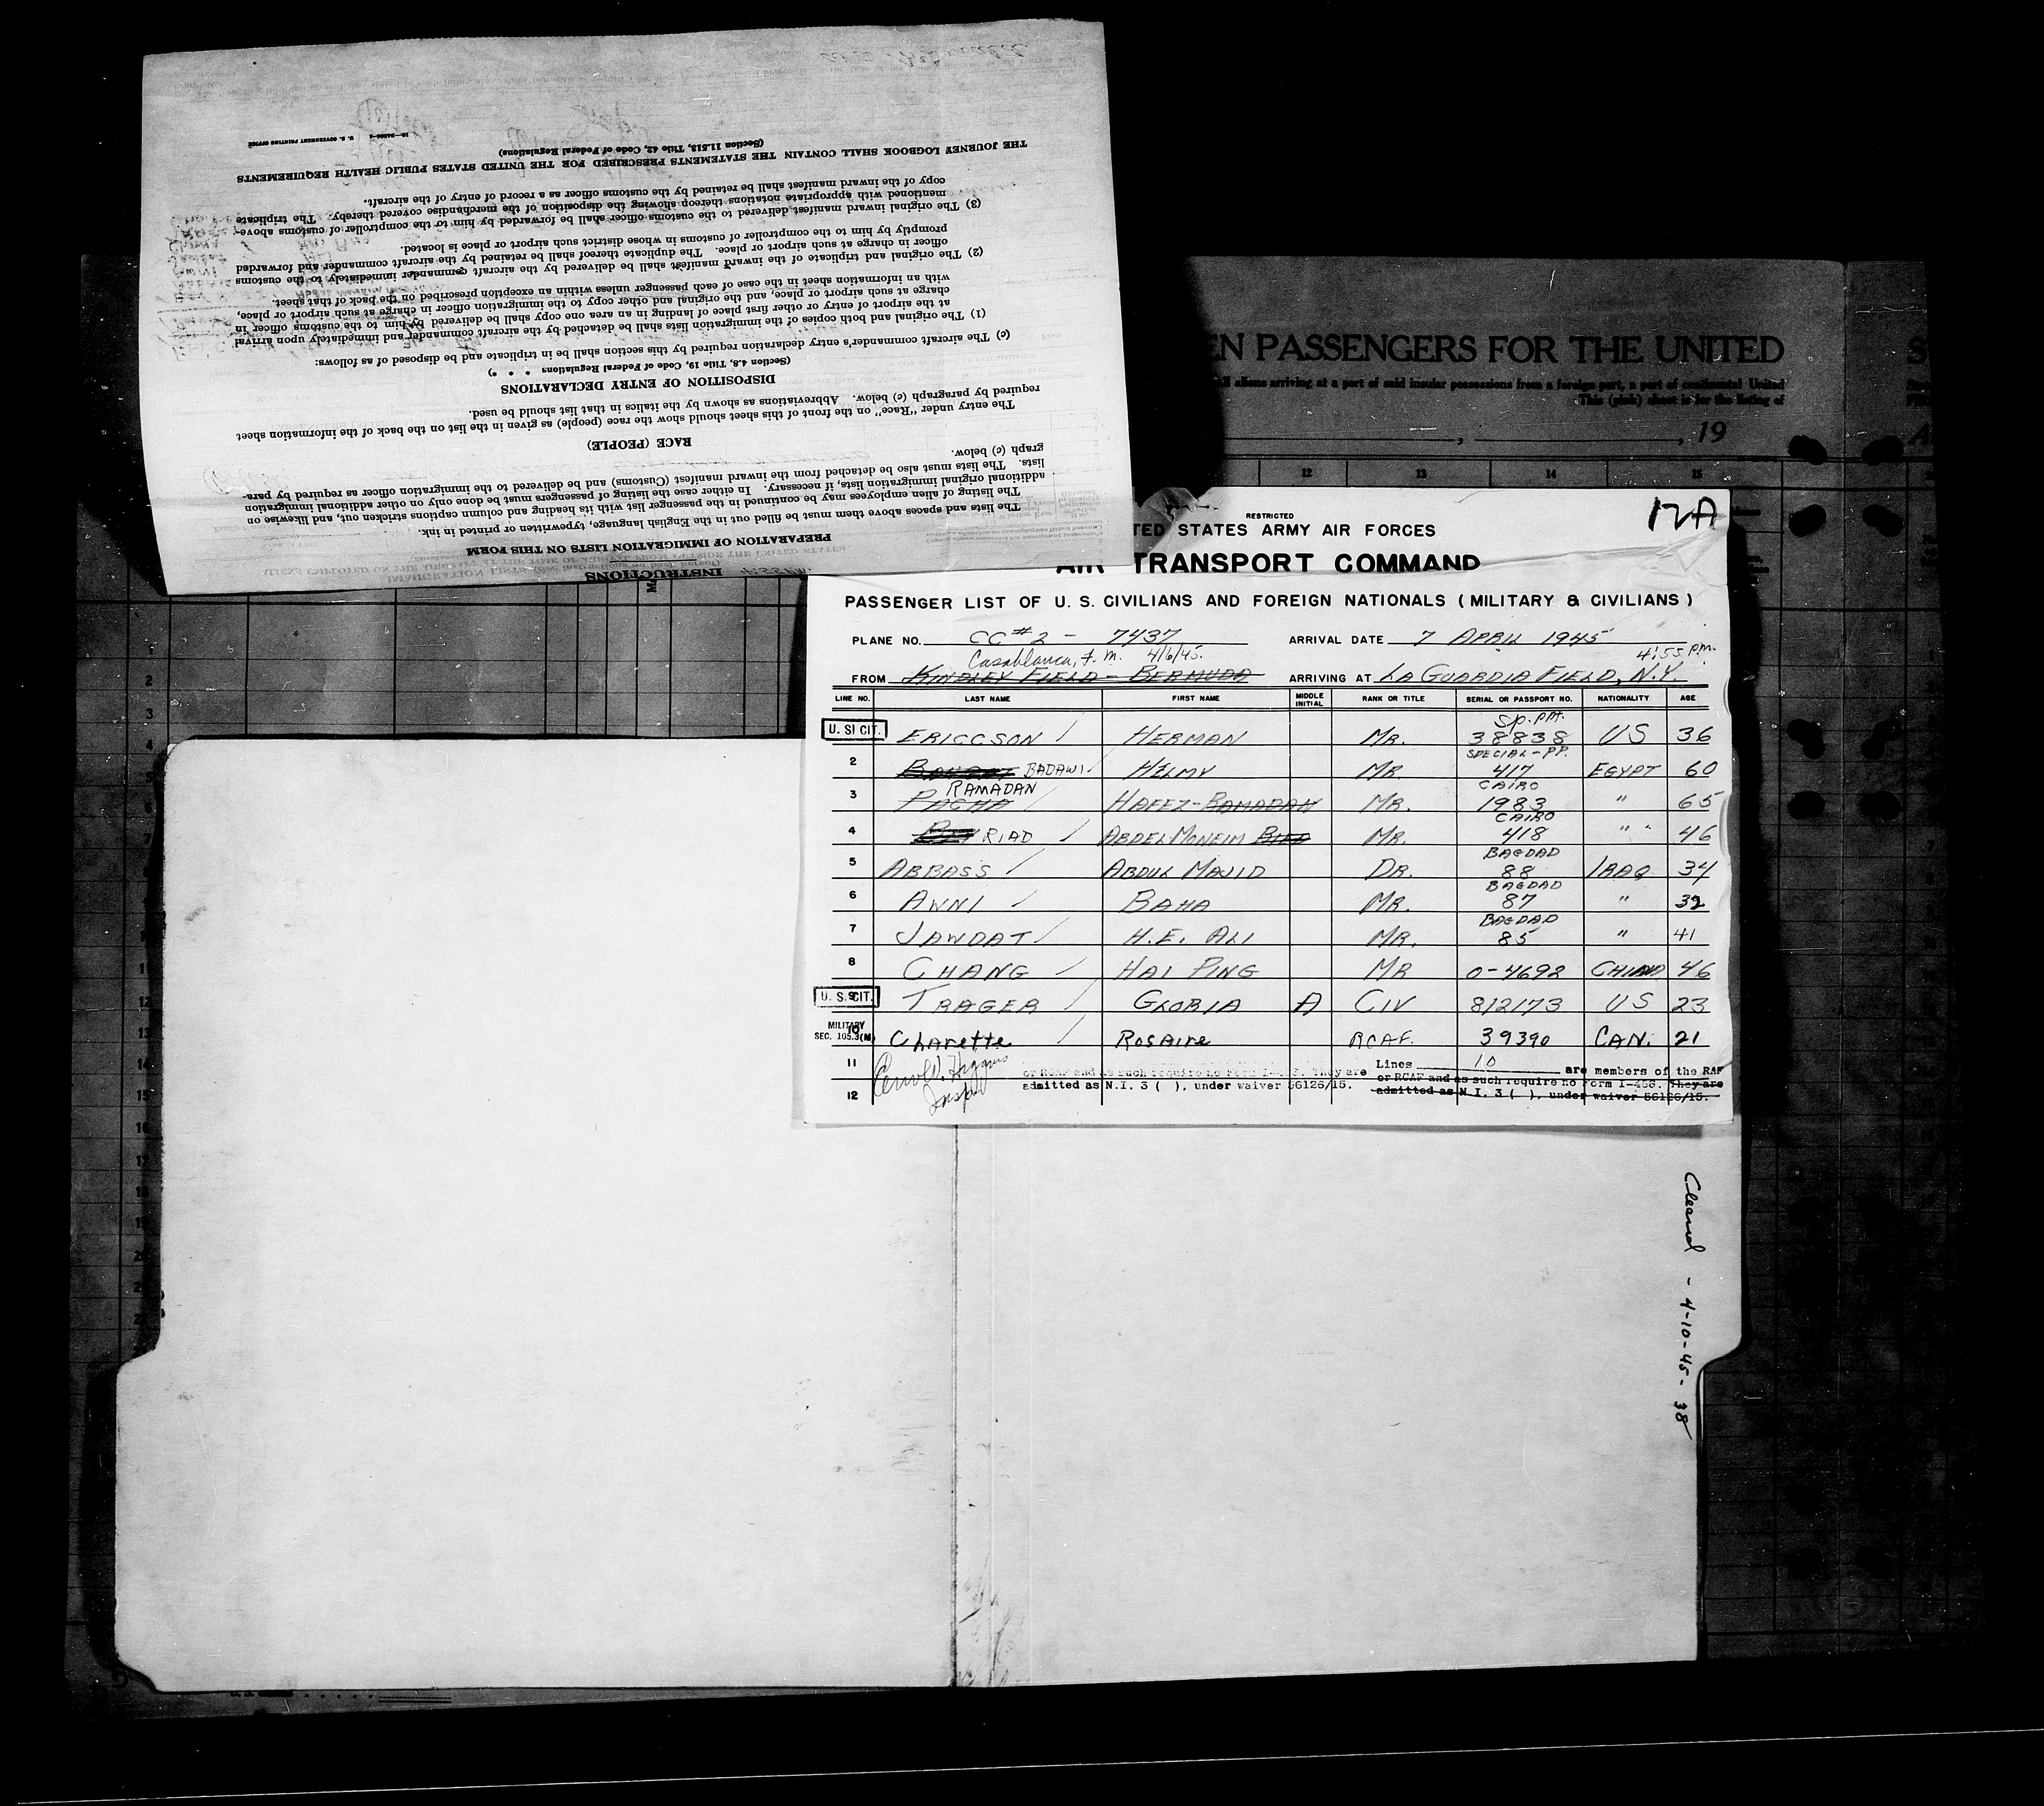 INSTRUCTIONS
PREPARATION OF IMMIGRATION LISTS ON THIS FORM
The lists and spaces above them must be filled out in the English language, typewritten or printed in ink.
The listing of alien employees may be continued in the passenger list with its heading and column captions stricken out, and likewise on
additional original immigration lists, if necessary. In either case the listing of passengers must be done only on other additional immigration
lists. The lists must also be detached from the inward manifest (Customs) and be delivered to the immigration officer as required by para-
graph (c) below.
RACE (PEOPLE)
The entry under "Race" on the front of this sheet should show the race (people) as given in the list on the back of the information sheet
required by paragraph (c) below. Abbreviations as shown by the italics in that list should be used.
DISPOSITION OF ENTRY DECLARATIONS
(Section 4.8, Title 19, Code of Federal Regulations * * *)
(c) The aircraft commander's entry declaration required by this section shall be in triplicate and be disposed of as follows:
(1) The original and both copies of the immigration lists shall be detached by the aircraft commander and immediately upon arrival
at the airport of entry or other first place of landing in an area one copy shall be delivered by him to the customs officer in
charge at such airport or place, and the original and other copy to the immigration officer in charge at such airport or place,
with an information sheet in the case of each passenger unless within an exception prescribed on the back of that sheet.
(2) The original and triplicate of the inward manifest shall be delivered by the aircraft commander immediately to the customs
officer in charge at such airport or place. The duplicate thereof shall be retained by the aircraft commander and forwarded
promptly by him to the comptroller of customs in whose district such airport or place is located.
(3) The original inward manifest delivered to the customs officer shall be forwarded by him to the comptroller of customs above-
mentioned with appropriate notations thereon showing the disposition of the merchandise covered thereby. The triplicate
copy of the inward manifest shall be retained by the customs officer as a record of entry of the aircraft.
THE JOURNEY LOGBOOK SHALL CONTAIN THE STATEMENTS PRESCRIBED FOR THE UNITED STATES PUBLIC HEALTH REQUIREMENTS
(Section 11.513, Title 42, Code of Federal Regulations)
U. S. GOVERNMENT PRINTING OFFICE
EN PASSENGERS FOR THE UNITED
ll aliens arriving at a port of said insular possessions from a foreign port, a port of continental United
This (pink) sheet is for the listing of
, , 19
12 13 14 15
12A
RESTRICTED
TED STATES ARMY AIR FORCES
AIR TRANSPORT COMMAND
PASSENGER LIST OF U. S. CIVILIANS AND FOREIGN NATIONALS ( MILITARY & CIVILIANS )
PLANE NO. CC#2 - 7437 ARRIVAL DATE 7 APRIL 1945
Casablanca, F. M. 4/6/45. 4:55 P.M.
FROM KINDLEY FIELD - BERMUDA ARRIVING AT LA GUARDIA FIELD, N.Y.
LINE NO. LAST NAME FIRST NAME MIDDLE INITIAL RANK OR TITLE SERIAL OR PASSPORT NO. NATIONALITY AGE
U. S. CIT. ERICCSON / HERMAN MR. Sp. PPt. 38838 US 36
2 BADAWI / HELMY MR. SPECIAL-PP. 417 EGYPT 60
3 PACHA RAMADAN / HAFEZ-RAMADAN MR. CAIRO 1983 " 65
4 RIAD / ABDEL MONEIM MR. CAIRO 418 " 46
5 ABBASS / ABDUL MAJID DR. BAGDAD 88 IRAQ 34
6 AWNI / BAHA MR. BAGDAD 87 " 32
7 JAWDAT / H.E. ALI MR. BAGDAD 85 " 41
8 CHANG / HAI PING MR 0-4692 CHINA 46
U. S. CIT. 9 TRAGER / GLORIA A CIV 812173 US 23
MILITARY SEC. 105.3(M) 10 Charette / Rosaire RCAF. 39390 CAN. 21
11 Lines 10 are members of the RAF
or RCAF and as such require no Form I-466. They are
admitted as N.I. 3 ( ), under waiver 56126/15.
or RCAF and as such require no Form I-466. They are
admitted as N.I. 3 ( ), under waiver 56126/15.
Higgins
Insp
12
Cleared - 4-10-45 - 38